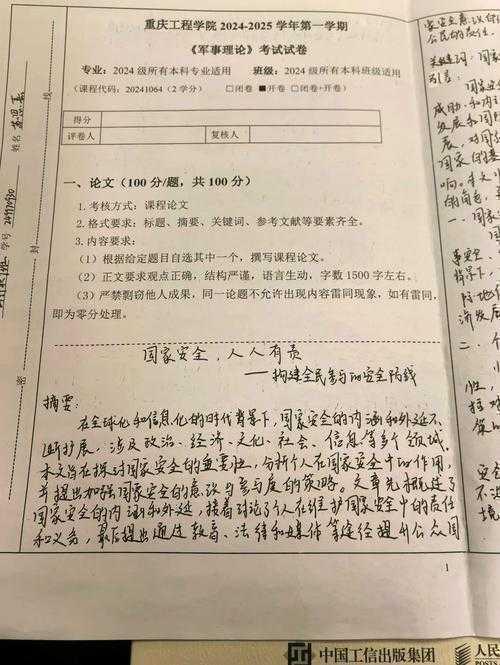 重庆工程学院 2024-2025 学年第一学期
《军事理论》考试试卷
专业：2024 级所有本科专业适用 班级：2024 级所有本科班级适用
（课程代码：20241064（2 学分） □闭卷 ■开卷 □闭卷+开卷）
得分
评卷人 复核人
一、论文（100 分/题，共 100 分）
1. 考核方式：课程论文
2. 格式要求：标题、摘要、关键词、参考文献等要素齐全。
3. 内容要求：
（1）根据给定题目自选其中一个，撰写课程论文。
（2）正文要求观点正确，结构严谨，语言生动，字数 1500 字左右。
（3）严禁剽窃他人成果，同一论题不允许出现内容雷同现象，如有雷同，
即为零分处理。
国家安全，人人有责
——构建全民参与的安全防线
摘要：
在全球化和信息化的时代背景下，国家安全的内涵和外延不
断扩展，涉及政治、经济、文化、社会、信息等多个领域。
本文旨在探讨国家安全的重要性，分析个人在国家安全中的作用，
并提出加强国家安全的意识与参与度的策略。文章先概述了
国家安全的内涵和外延，接着讨论了个人在维护国家安全中的责任
和义务，最后提出通过教育、法律和媒体等途径提升公众国
1
姓名
学号
线
封
密
关键词：国家
引言：
国家安
发展和国
国家的基
一、国家
背景下，
济发展
二、个
中国工信出版集团
人民